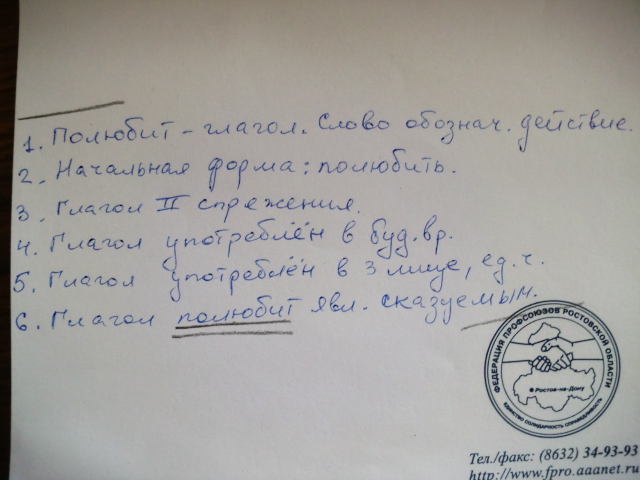 1. Полюбит – глагол. Слово обознач. действие.
2. Начальная форма: полюбить.
3. Глагол II спряжения.
4. Глагол употреблён в буд. вр.
5. Глагол употреблён в 3 лице, ед. ч.
6. Глагол полюбит явл. сказуемым.
ФЕДЕРАЦИЯ ПРОФСОЮЗОВ РОСТОВСКОЙ ОБЛАСТИ
Ростов-на-Дону
ЕДИНСТВО СОЛИДАРНОСТЬ СПРАВЕДЛИВОСТЬ
Тел./факс: (8632) 34-93-93
http://www.fpro.aaanet.ru